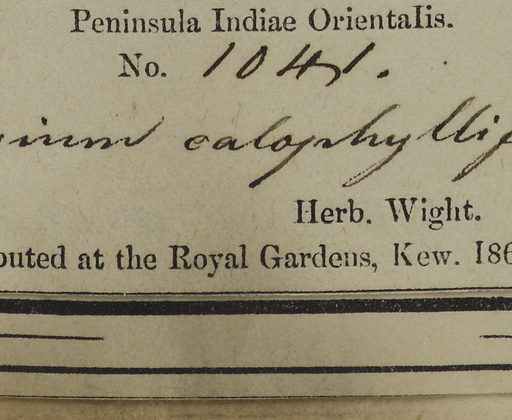 Peninsula Indiae Orientalis.
No. 1041.
ium calophyllif
Herb. Wight.
buted at the Royal Gardens, Kew. 186